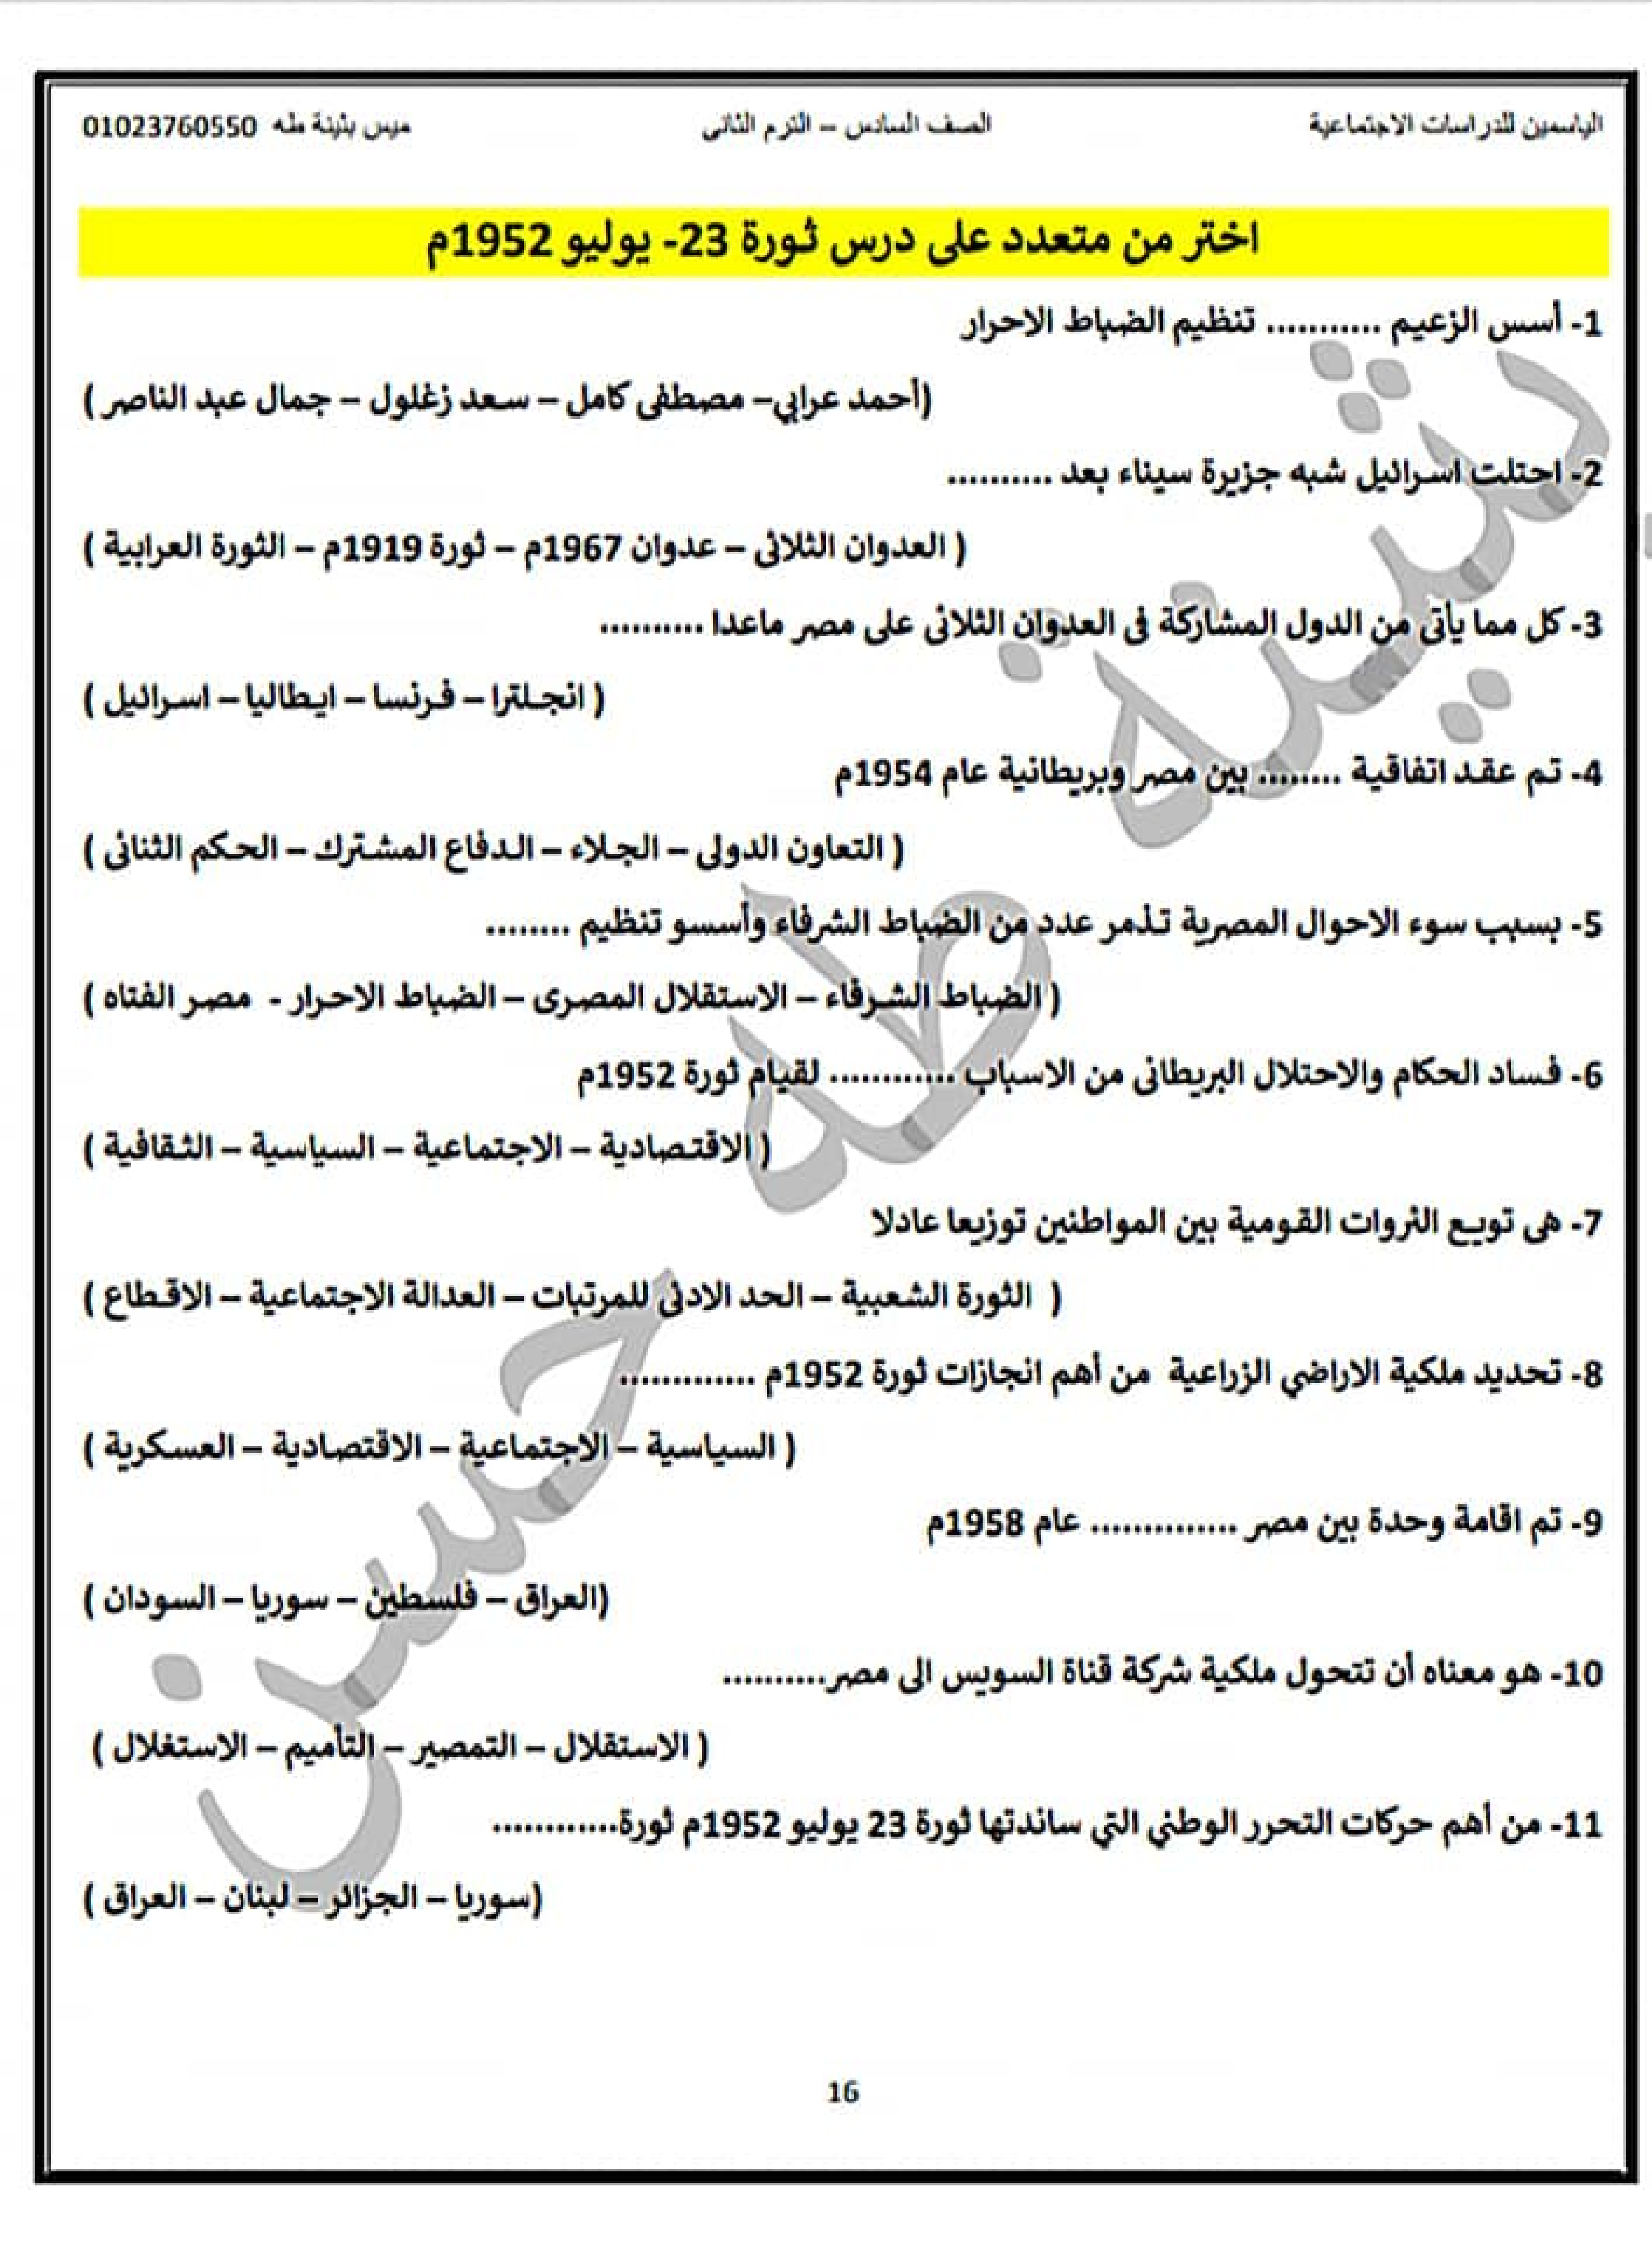 الياسمين للدراسات الاجتماعية الصف السادس – الترم الثانى ميس بثينة طه 01023760550
اختر من متعدد على درس ثورة 23- يوليو 1952م
1- أسس الزعيم ........... تنظيم الضباط الاحرار
(أحمد عرابي– مصطفى كامل – سعد زغلول – جمال عبد الناصر )
2- احتلت اسرائيل شبه جزيرة سيناء بعد ..........
( العدوان الثلاثى – عدوان 1967م – ثورة 1919م – الثورة العرابية )
3- كل مما يأتى من الدول المشاركة فى العدوان الثلاثى على مصر ماعدا ..........
( انجلترا – فرنسا – ايطاليا – اسرائيل )
4- تم عقد اتفاقية ........ بين مصر وبريطانية عام 1954م
( التعاون الدولى – الجلاء – الدفاع المشترك – الحكم الثنائى )
5- بسبب سوء الاحوال المصرية تذمر عدد من الضباط الشرفاء وأسسو تنظيم ........
( الضباط الشرفاء – الاستقلال المصرى – الضباط الاحرار - مصر الفتاه )
6- فساد الحكام والاحتلال البريطانى من الاسباب ............ لقيام ثورة 1952م
( الاقتصادية – الاجتماعية – السياسية – الثقافية )
7- هى تويع الثروات القومية بين المواطنين توزيعا عادلا
( الثورة الشعبية – الحد الادنى للمرتبات – العدالة الاجتماعية – الاقطاع )
8- تحديد ملكية الاراضي الزراعية من أهم انجازات ثورة 1952م .............
( السياسية – الاجتماعية – الاقتصادية – العسكرية )
9- تم اقامة وحدة بين مصر .............. عام 1958م
(العراق – فلسطين – سوريا – السودان )
10- هو معناه أن تتحول ملكية شركة قناة السويس الى مصر..........
( الاستقلال – التمصير – التأميم – الاستغلال )
11- من أهم حركات التحرر الوطني التي ساندتها ثورة 23 يوليو 1952م ثورة............
(سوريا – الجزائر – لبنان – العراق )
بثينه طه حسن
16